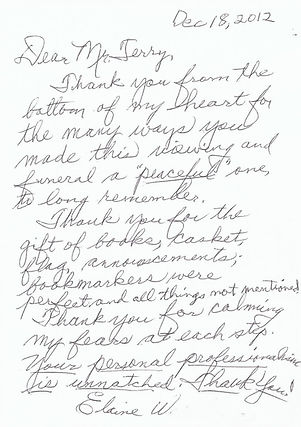 Dec 18, 2012
Dear Mr. Terry,
Thank you from the
bottom of my heart for
the many ways you
made this viewing and
funeral a "peaceful" one,
to long remember.
Thank you for the
gift of books, casket,
flag, announcements,
bookmarkers were
perfect, and all things not mentioned
Thank you for calming
my fears at each step.
Your personal professionalism
is unmatched. Thank you!
Elaine W.